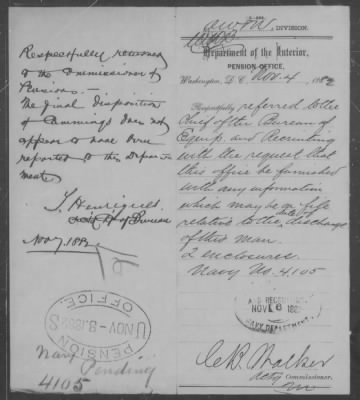 Respectfully returned
to the Commissioner of
Pensions. —
The final disposition
of Cummings does not
appear to have been
reported to this Depart-
ment.
Nov 7, 1882
U.S. PENSION OFFICE
NOV 8 1882
Navy Pending
4105
DIVISION.
Department of the Interior,
PENSION OFFICE,
Washington, D. C., Nov. 4, 1882
Respectfully referred to the
Chief of the Bureau of
Equip. and Recruiting
with the request that
this office be furnished
with any information
which may be on file
relative to the date of discharge
of this man.
2 enclosures.
Navy No. 4105
AND RECRUITING
NOV 6 1882
NAVY DEPARTMENT.
C B. Walker
Actg Commissioner.